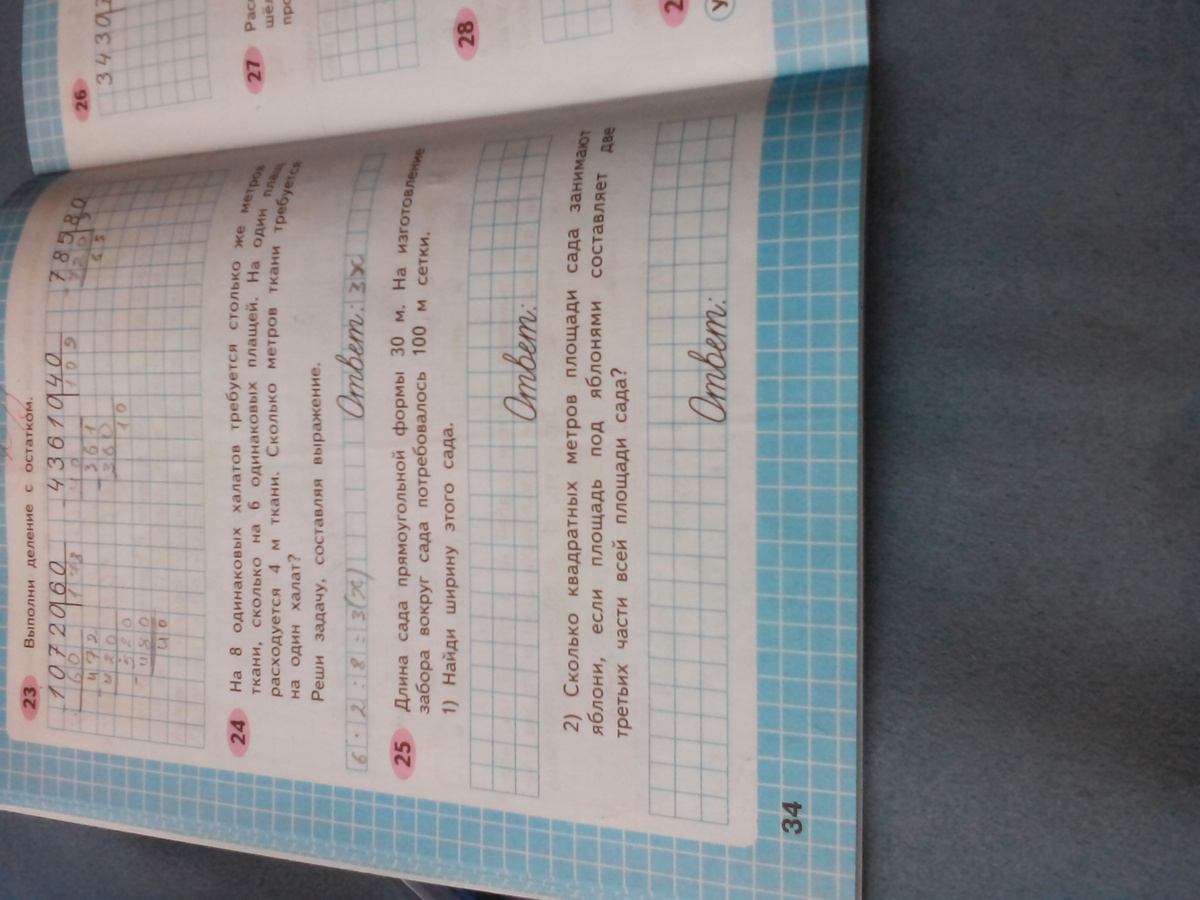 23 Выполни деление с остатком.
10720 60 43610 40 7858 0
60 109 720
472 361 65
420 360
520 10
480
40
24 На 8 одинаковых халатов требуется столько же метров
ткани, сколько на 6 одинаковых плащей. На один плащ
расходуется 4 м ткани. Сколько метров ткани требуется
на один халат?
Реши задачу, составляя выражение.
Ответ:
25 Длина сада прямоугольной формы 30 м. На изготовление
забора вокруг сада потребовалось 100 м сетки.
1) Найди ширину этого сада.
Ответ:
2) Сколько квадратных метров площади сада занимают
яблони, если площадь под яблонями составляет две
третьих части всей площади сада?
Ответ:
34
26
27
28